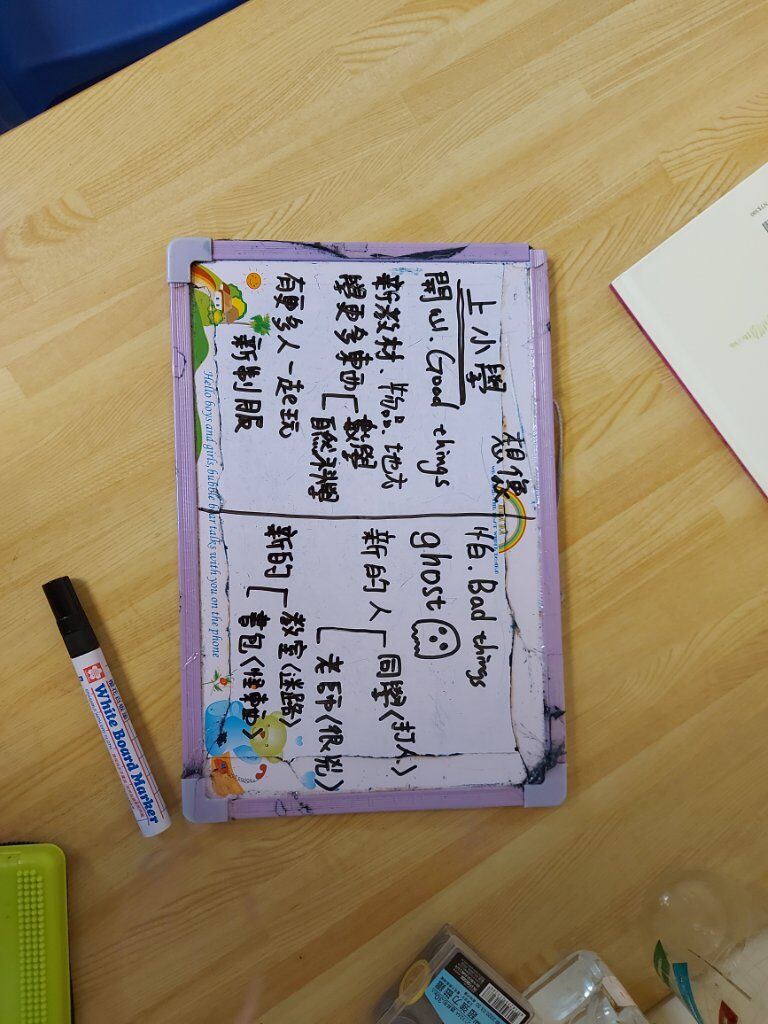 想像
上小學
開心. Good things
新教材、物品、地方
學更多東西 數學
自然科學
有更多人一起玩
新制服
怕. Bad things
ghost
新的人 同學<打人>
老師<很兇>
新的 教室<迷路>
書包<怪東西>
Hello boys and girls, bubble bear talks with you on the phone
White Board Marker
超強力磁